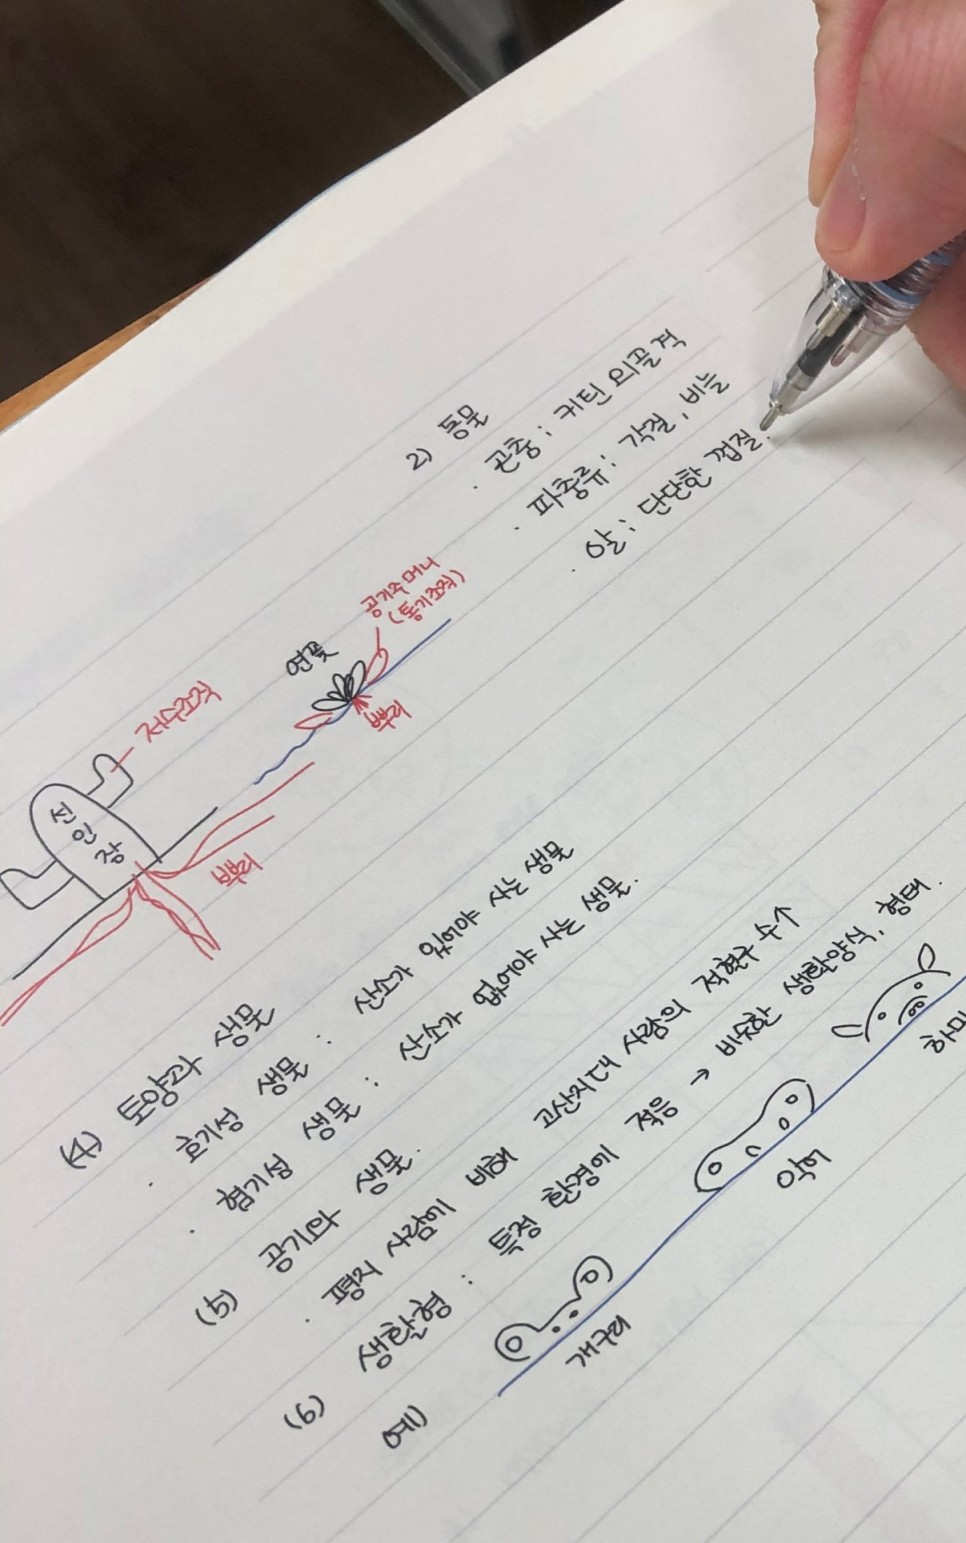 선인장
저수조직
뿌리
연꽃
공기주머니
(통기조직)
뿌리
2) 동물
· 곤충 ; 키틴 외골격
· 파충류 ; 각질, 비늘
· 알 ; 단단한 껍질.
(4) 토양과 생물
· 호기성 생물 : 산소가 있어야 사는 생물
· 혐기성 생물 : 산소가 없어야 사는 생물.
(5) 공기와 생물.
· 평지 사람에 비해 고산지대 사람의 적혈구 수↑
(6) 생활형 : 특정 환경에 적응 → 비슷한 생활양식, 형태.
예)
개구리
악어